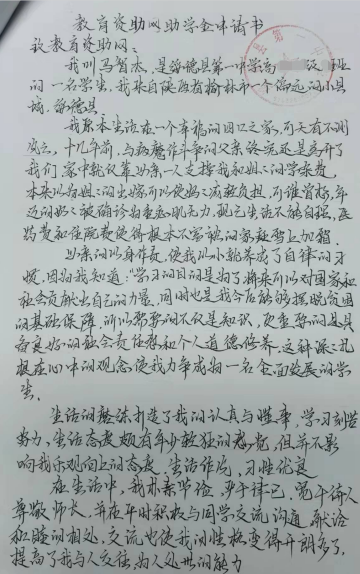 教育资助网助学金申请书
致教育资助网：
我叫马智杰，是绥德县第一中学高 班
的一名学生，我来自陕西省榆林市一个偏远的小县
城，绥德县
我原本生活在一个幸福的四口之家，可天有不测
风云，十几年前，与病魔作斗争的父亲终究还是离开了
我们，家中就只靠母亲一人支撑我和姐姐的学杂费，
本来以为姐姐的出嫁可以使妈妈减轻负担，可谁曾想，年
迈的奶奶被确诊为重症肌无力，现已生活不能自理，医
药费和住院费使得根本不富裕的家庭雪上加霜。
母亲的以身作责，使我从小就养成了自律的习
惯，因为我知道："学习的目的是为了将来可以对国家和
社会贡献出自己的力量，同时也是我今后能够摆脱贫困
的基础保障，所以需要的不仅是知识，更重要的是具
备良好的社会责任感和个人道德修养，这种深深扎
根在心中的观念，使我力争成为一名全面发展的学
生。
生活的磨练打造了我的认真与性率，学习刻苦
努力，生活态度颇有年少轻狂的感觉，但并不影
响我乐观向上的态度，生活作风，习性优良
在生活中，我朴素节俭，严于律己，宽于待人
尊敬师长，并在平时积极与同学交流沟通，融洽
和睦的相处，交流也使我的性格变得开朗多了，
提高了我与人交往，为人处世的能力